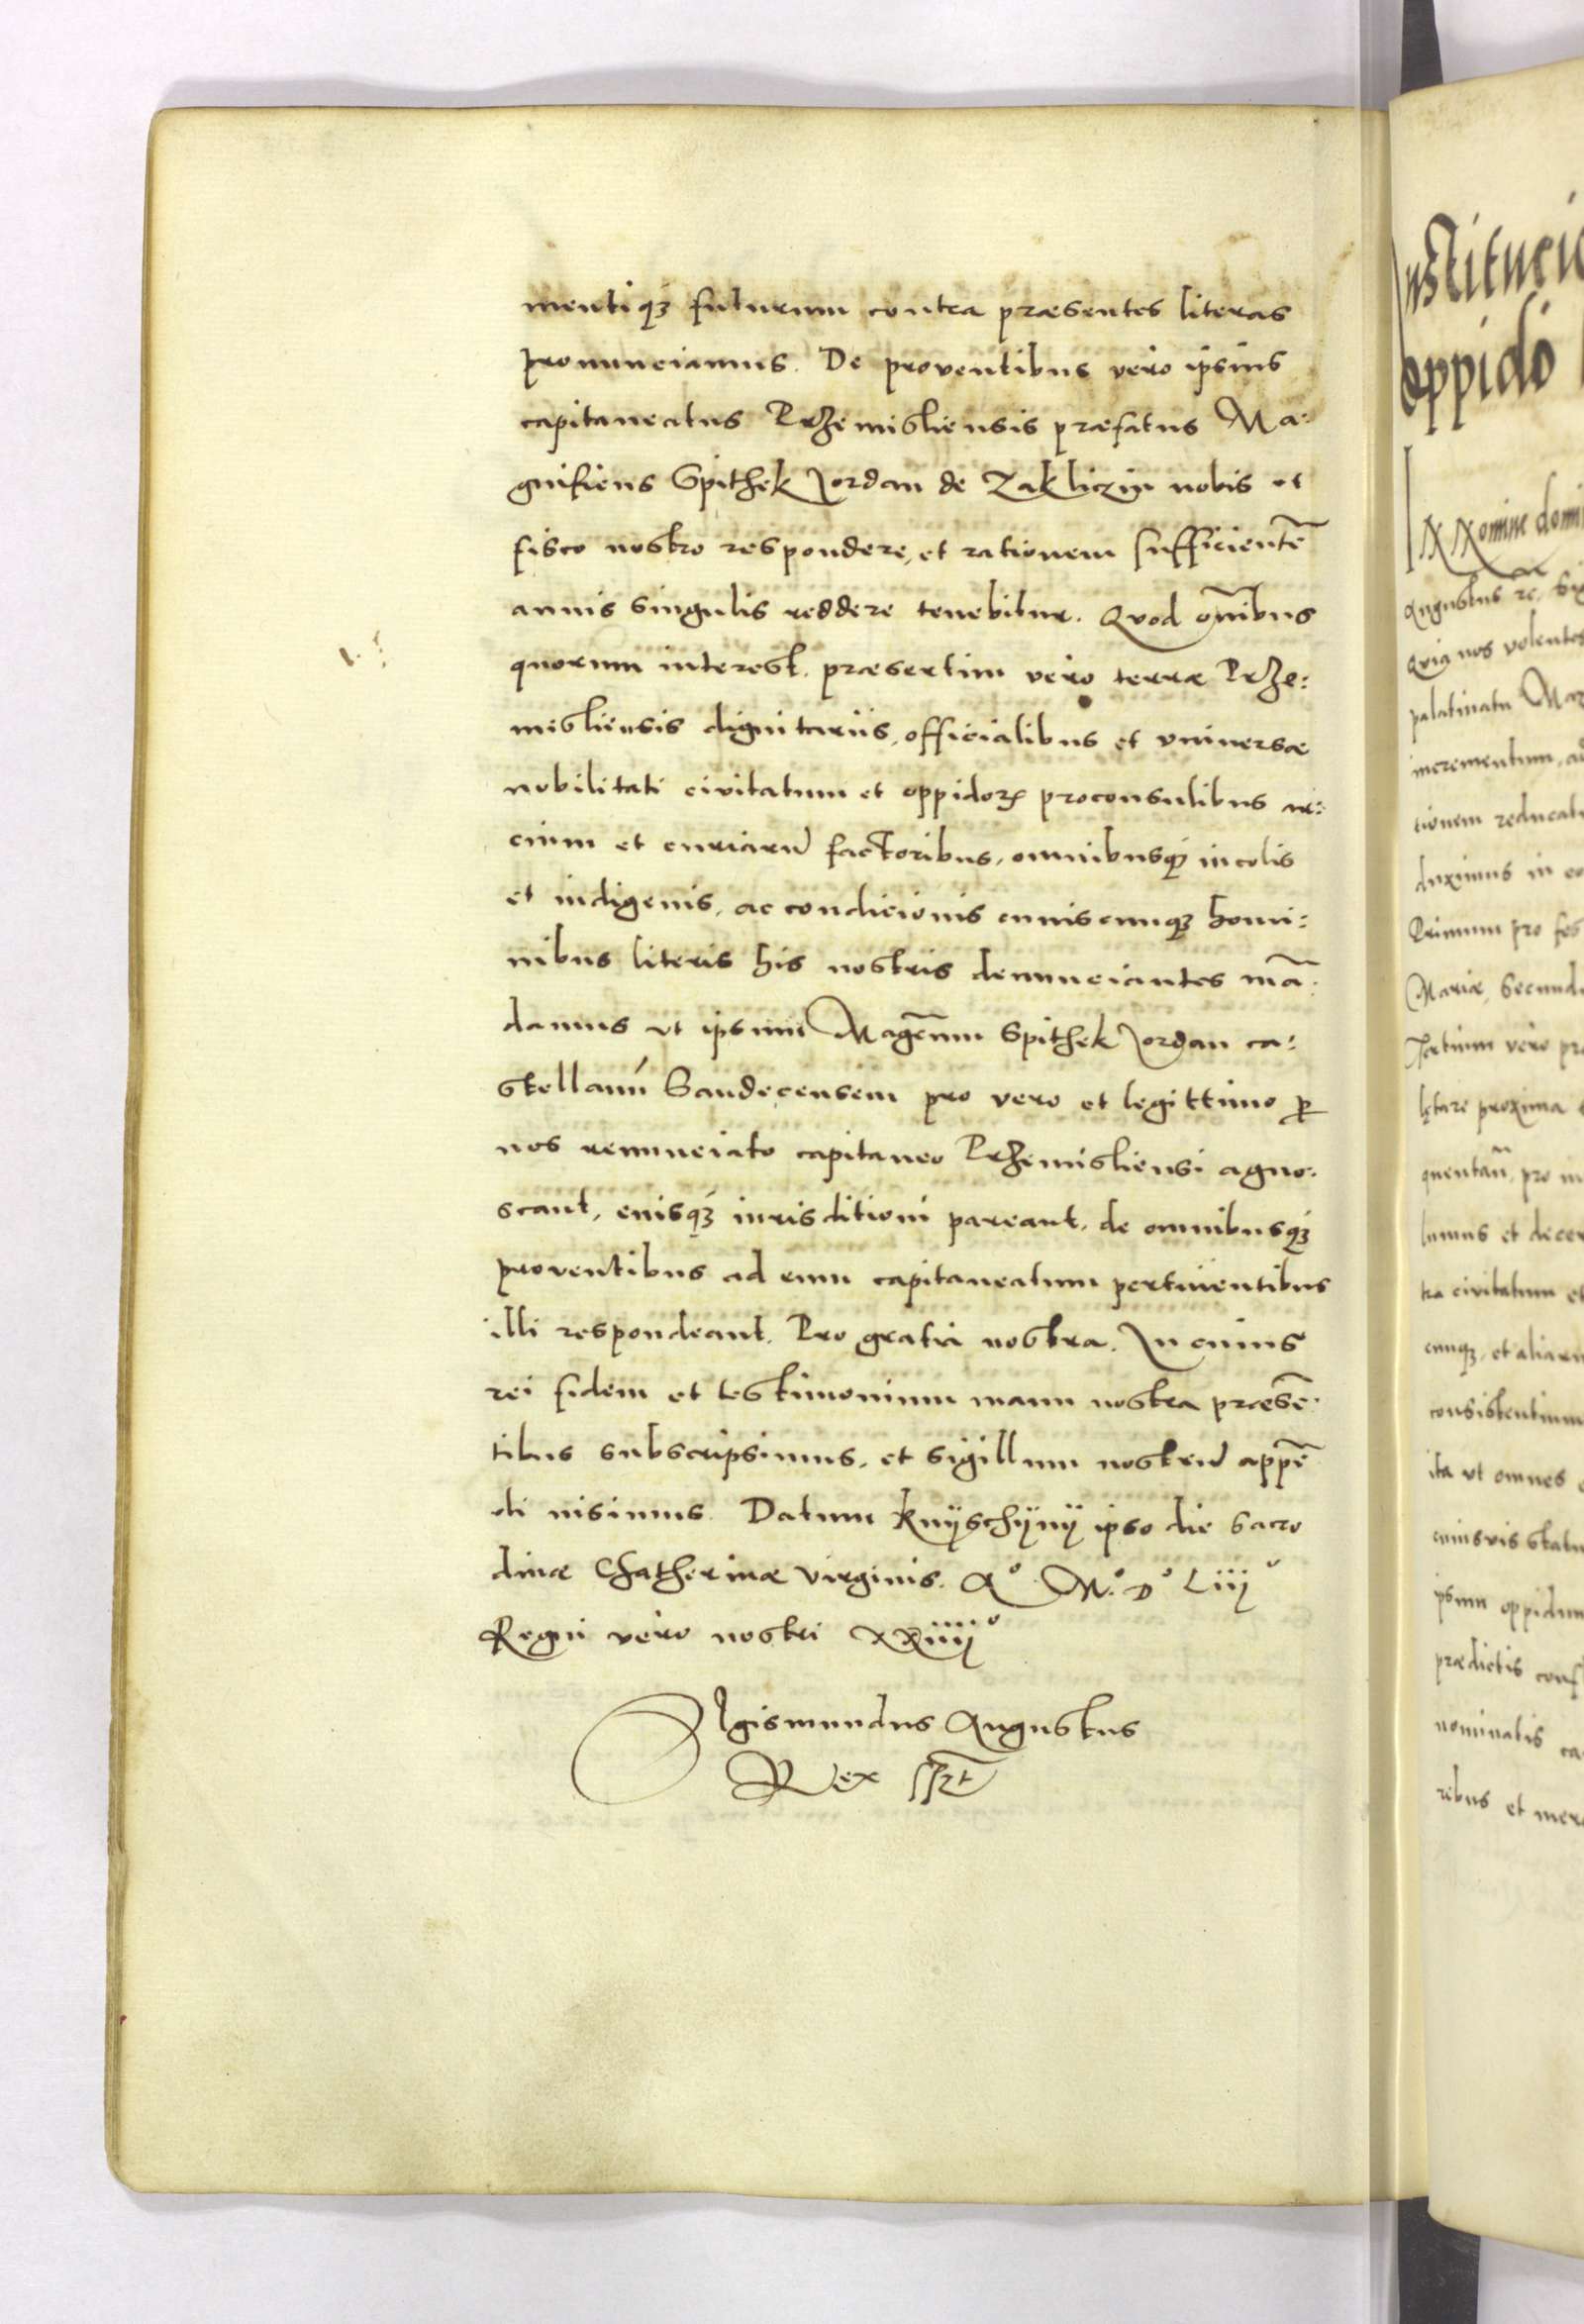 mentiq3 futurum contra præsentes literas
pronunciamus. De proventibus vero ipsius
capitaneatus Przemisliensis præfatus Ma:
gnificus Spithek Jordan de Zakliczin nobis et
fisco nostro respondere, et rationem sufficientē
annis singulis reddere tenebitur. Quod om̄ibus
quorum interest. præsertim vero terræ Prze:
misliensis dignitariis, officialibus et vniversæ
nobilitati civitatum et oppidoꝝ proconsulibus ar:
cium et curiarū factoribus, omnibusq3 incolis
et indigenis, ac condicionis cuiuscunq3 homi:
nibus literis his nostris denunciantes mā:
damus vt ipsum Magcum Spithek Jordan ca:
stellanū Sandecensem pro vero et legittimo ꝑ
nos renunciato capitaneo Przemisliensi agno:
scant, eiusq3 iurisditioni pareant, de omnibusq3
proventibus ad eum capitaneatum pertinentibus
illi respondeant. Pro gratia nostra. In cuius
rei fidem et testimonium manu nostra præsē:
tibus subscripsimus, et sigillum nostrū appē
di iusimus. Datum Knÿschÿnÿ ipso die sacro
divæ Chatherinæ virginis. Aº. Mº. Dº Liijº
Regni vero nostri xxiiijº
Sigismundus Augustus
Rex sst
Institucio
oppido
In Nomine domi
Augustus rē, Sig
Qvia nos volentes
palatinatu Maz
incrementum, ad
tionem reducat
duximus in eo
Primum pro fes
Mariæ, Secund
Tertium vero pr
lętare proxima
quentaū, pro in
lumus et decer
tra civitatum et
cunq3, et aliaru
consistentium
ita vt omnes
cuiusvis statu
ipsum oppidum
prædictis conf
nominatis ca
rebus et merc